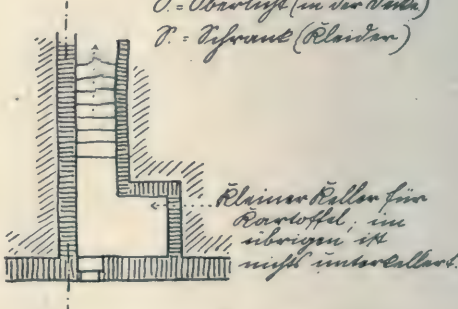 O. = Oberlicht (in der Decke)
S. = Schrank (Kleider)
Kleiner Keller für
Kartoffel; im
übrigen ist
nichts unterkellert.